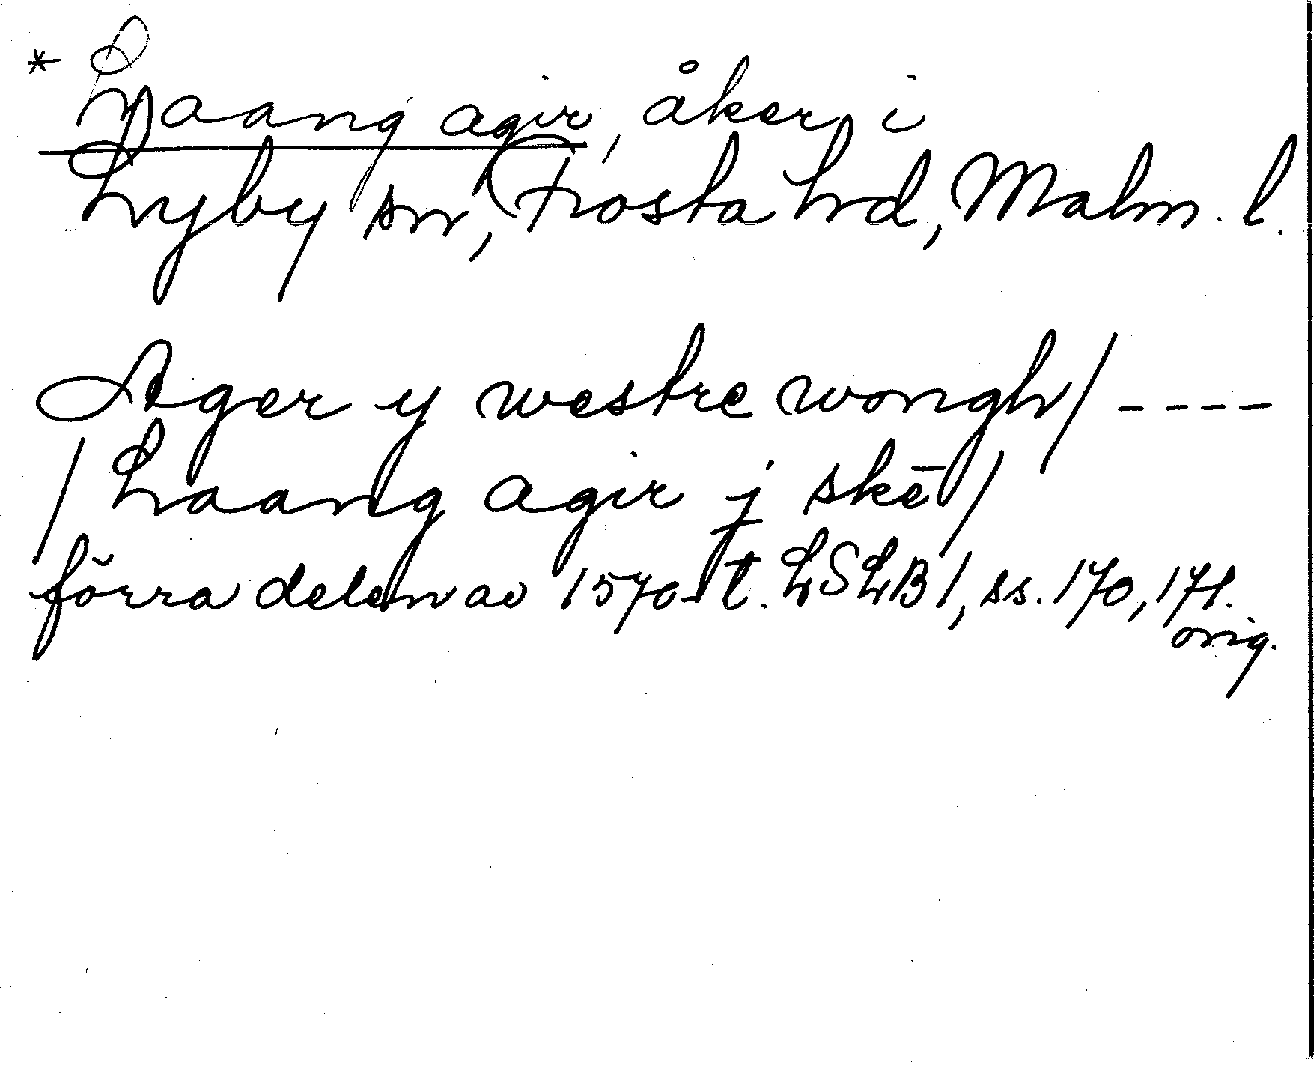 * Laang agir, åker i
Lyby sn, Frosta hd, Malm. l.
Ager y westre wongh/ ----
/ Laang agir j skē /
förra delen av 1570-t. LSLB 1, ss. 170, 171.
orig.